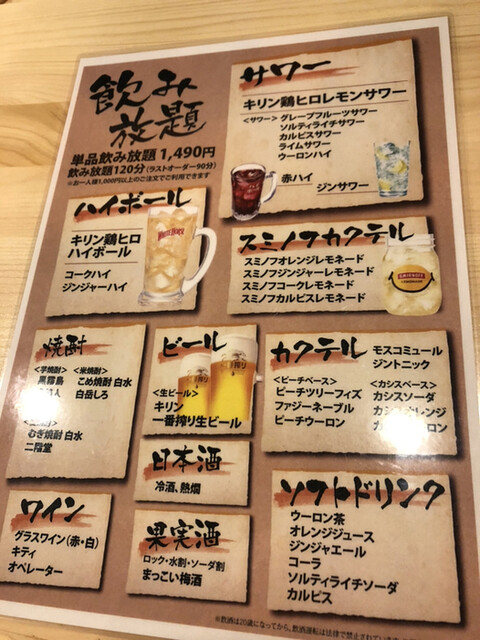 飲み
放題
単品飲み放題 1,490円
飲み放題120分(ラストオーダー90分)
※お一人様1,000円以上のご注文でご利用できます
サワー
キリン鶏ヒロレモンサワー
<サワー> グレープフルーツサワー
ソルティライチサワー
カルピスサワー
ライムサワー
ウーロンハイ
赤ハイ
ジンサワー
ハイボール
キリン鶏ヒロ
ハイボール
コークハイ
ジンジャーハイ
スミノフカクテル
スミノフオレンジレモネード
スミノフジンジャーレモネード
スミノフコークレモネード
スミノフカルピスレモネード
SMIRNOFF
焼酎
<芋焼酎>
黒霧島
<米焼酎>
こめ焼酎 白水
白岳しろ
むぎ焼酎 白水
二階堂
ビール
<生ビール>
キリン
一番搾り生ビール
カクテル
モスコミュール
ジントニック
<ピーチベース>
ピーチツリーフィズ
ファジーネーブル
ピーチウーロン
<カシスベース>
カシスソーダ
カシスオレンジ
日本酒
冷酒、熱燗
ワイン
グラスワイン(赤・白)
キティ
オペレーター
果実酒
ロック・水割・ソーダ割
まっこい梅酒
ソフトドリンク
ウーロン茶
オレンジジュース
ジンジャエール
コーラ
ソルティライチソーダ
カルピス
※飲酒は20歳になってから、飲酒運転は法律で禁止されています